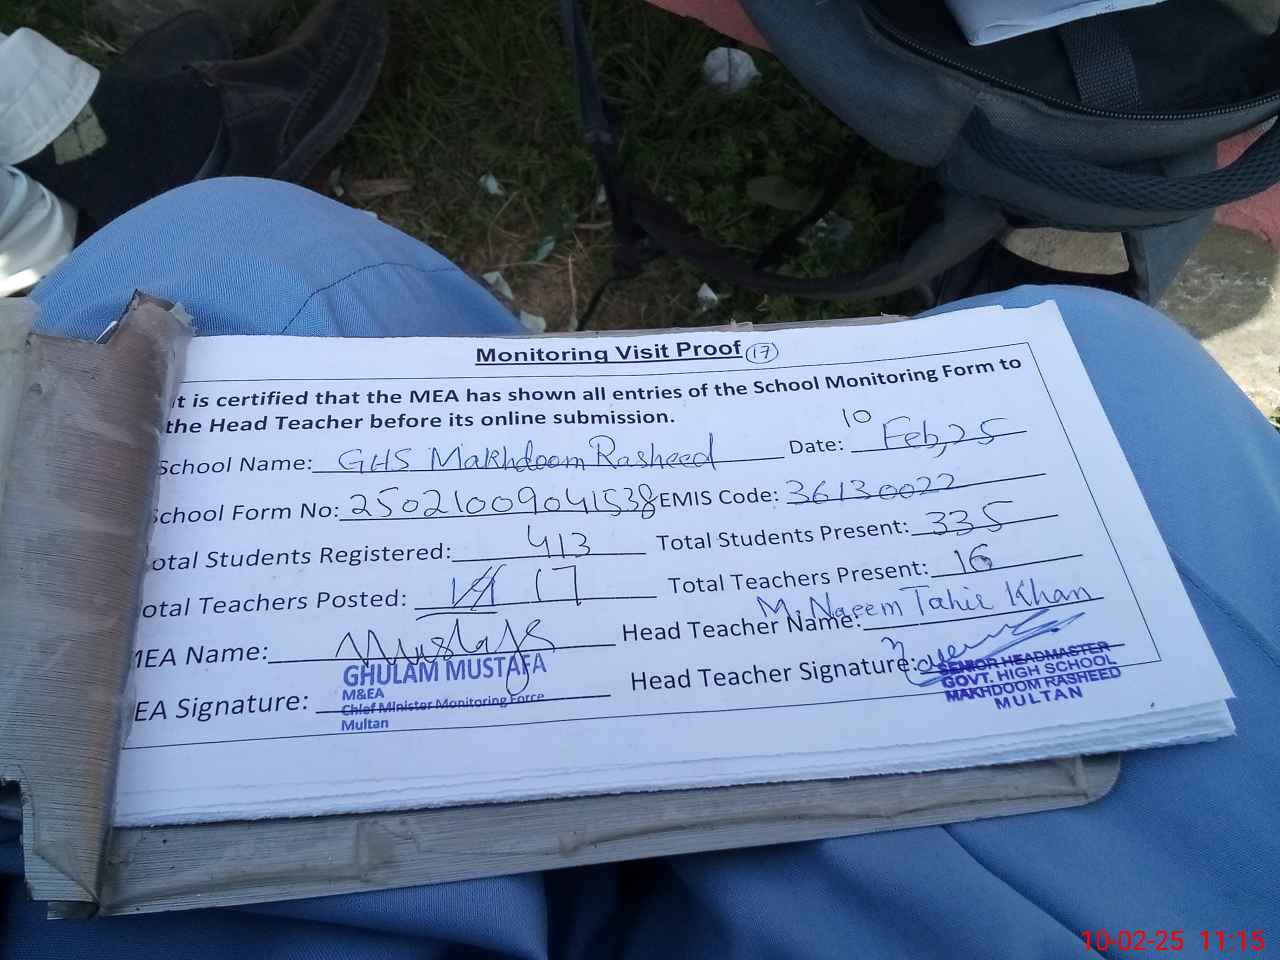 Monitoring Visit Proof 17
It is certified that the MEA has shown all entries of the School Monitoring Form to
the Head Teacher before its online submission.
School Name: GHS Makhdoom Rasheed Date: 10 Feb, 25
School Form No: 25021009041538 EMIS Code: 36130022
otal Students Registered: 413 Total Students Present: 335
otal Teachers Posted: 17 Total Teachers Present: 16
MEA Name: Mustafa Head Teacher Name: M. Naeem Tahir Khan
EA Signature: Head Teacher Signature:
GHULAM MUSTAFA
M&EA
Chief Minister Monitoring Force
Multan
SENIOR HEADMASTER
GOVT. HIGH SCHOOL
MAKHDOOM RASHEED
MULTAN
10-02-25 11:15